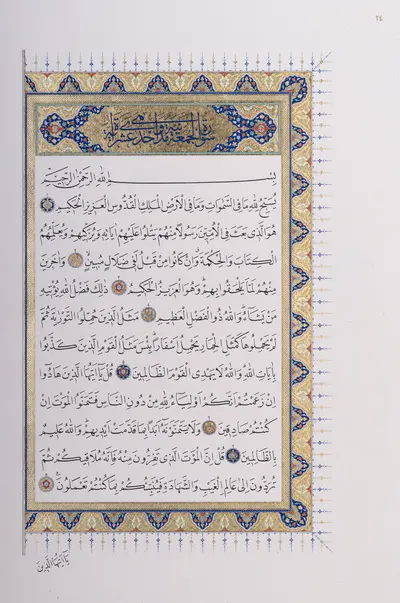 سورة الجمعة مدنية وهي احدى عشرة اية
بسم الله الرحمن الرحيم
يُسَبِّحُ لِلَّهِ مَا فِي السَّمٰوَاتِ وَمَا فِي الْاَرْضِ الْمَلِكِ الْقُدُّوسِ الْعَزِيزِ الْحَكِيمِ
هُوَ الَّذِي بَعَثَ فِي الْاُمِّيّٖنَ رَسُولًا مِنْهُمْ يَتْلُوا عَلَيْهِمْ اٰيَاتِهِ وَيُزَكِّيهِمْ وَيُعَلِّمُهُمُ
الْكِتَابَ وَالْحِكْمَةَ وَاِنْ كَانُوا مِنْ قَبْلُ لَفِي ضَلَالٍ مُبِينٍ وَاٰخَرِينَ
مِنْهُمْ لَمَّا يَلْحَقُوا بِهِمْ وَهُوَ الْعَزِيزُ الْحَكِيمُ ذٰلِكَ فَضْلُ اللّٰهِ يُؤْتِيهِ
مَنْ يَشَاءُ وَاللّٰهُ ذُو الْفَضْلِ الْعَظِيمِ مَثَلُ الَّذِينَ حُمِّلُوا التَّوْرٰيةَ ثُمَّ
لَمْ يَحْمِلُوهَا كَمَثَلِ الْحِمَارِ يَحْمِلُ اَسْفَارًا بِئْسَ مَثَلُ الْقَوْمِ الَّذِينَ كَذَّبُوا
بِاٰيَاتِ اللّٰهِ وَاللّٰهُ لَا يَهْدِي الْقَوْمَ الظَّالِمِينَ قُلْ يَا اَيُّهَا الَّذِينَ هَادُوا
اِنْ زَعَمْتُمْ اَنَّكُمْ اَوْلِيَاءُ لِلّٰهِ مِنْ دُونِ النَّاسِ فَتَمَنَّوُا الْمَوْتَ اِنْ
كُنْتُمْ صَادِقِينَ وَلَا يَتَمَنَّوْنَهُ اَبَدًا بِمَا قَدَّمَتْ اَيْدِيهِمْ وَاللّٰهُ عَلِيمٌ
بِالظَّالِمِينَ قُلْ اِنَّ الْمَوْتَ الَّذِي تَفِرُّونَ مِنْهُ فَاِنَّهُ مُلَاقِيكُمْ ثُمَّ
تُرَدُّونَ اِلٰى عَالِمِ الْغَيْبِ وَالشَّهَادَةِ فَيُنَبِّئُكُمْ بِمَا كُنْتُمْ تَعْمَلُونَ
يَا اَيُّهَا الَّذِينَ